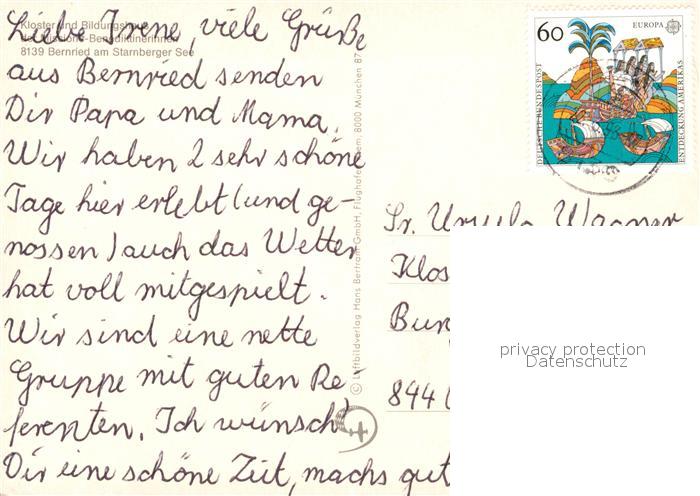 Kloster und Bildungshaus
der Missions-Benediktinerinnen
8139 Bernried am Starnberger See
Liebe Irene, viele Grüße
aus Bernried senden
Dir Papa und Mama.
Wir haben 2 sehr schöne
Tage hier erlebt (und ge-
nossen) auch das Wetter
hat voll mitgespielt.
Wir sind eine nette
Gruppe mit guten Re-
ferenten. Ich wünsch
Dir eine schöne Zeit, machs gut
© Luftbildverlag Hans Bertram GmbH, Flughafen Riem, 8000 München 87
60
EUROPA
DEUTSCHE BUNDESPOST
ENTDECKUNG AMERIKAS
Sr. Ursula Wagner
Klos
Bur
844
privacy protection
Datenschutz